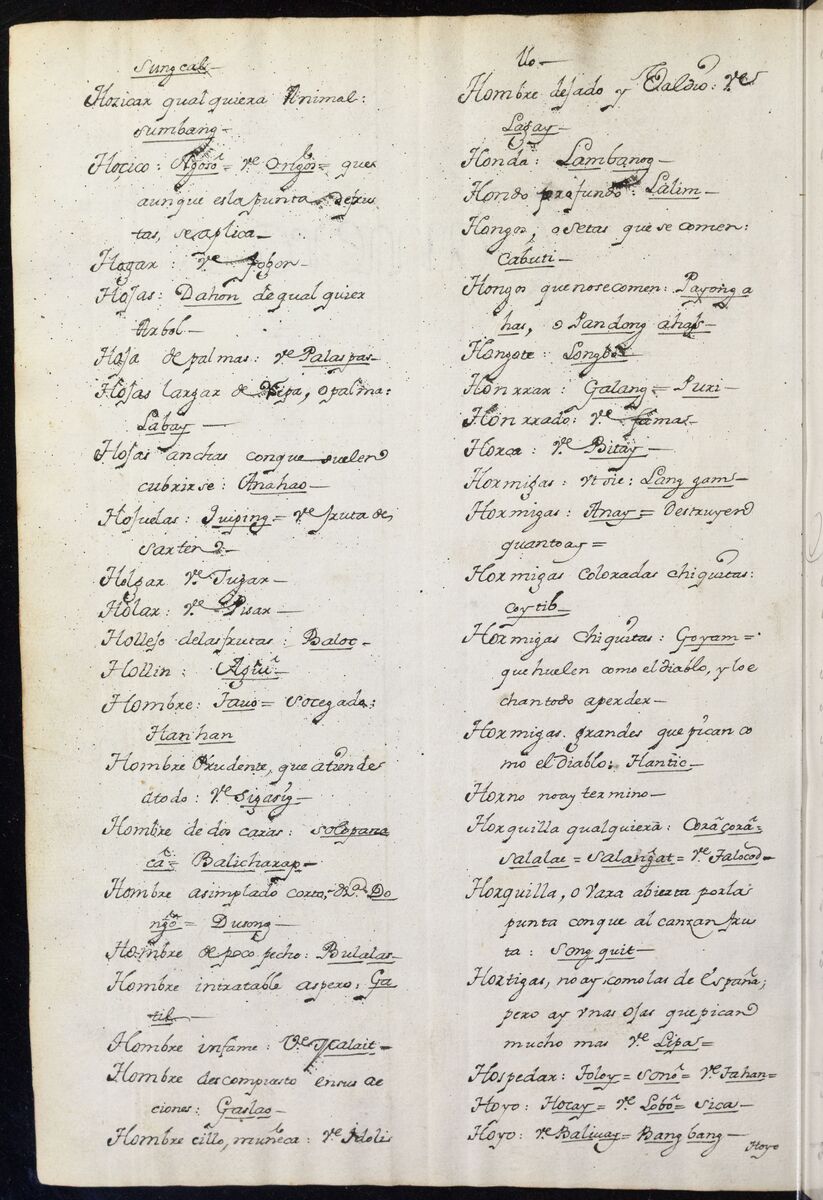 Sungcal
Hozicar qualquiera Animal:
Sumbang
Hoçico: Ngosõ = Ve Ongõs = que
aunque es la punta de fru
tas, se aplica
Hogar: Ve fogon
Hojas: Dahon de qualquier
Arbol
Hoja de palmas: Ve Palaspas
Hojas largas de Nipa, o palma:
Labay
Hojas anchas con que suelen
cubrirse: Anahao
Hojuelas: Guiping = Ve fruta de
sarten
Holgar Ve Jugar
Hollar: Ve Pisar
Hollejo de las frutas: Baloc
Hollin: Agiũ
Hombre: Tauo = Socegado:
Hanhan
Hombre Prudente, que atiende
a todo: Ve Sigasig
Hombre de dos caras: Solopana
cã = Balicharap
Hombre asimplado corto, Do
ngõ = Dusong
Hombre de poco pecho: Bulalas
Hombre intratable aspero: Ga
til
Hombre infame: Ve Calait
Hombre descompuesto en sus ac
ciones: Gaslao
Hombre cillo, muñeca: Ve Idoli
llo
Hombre dejado y Valdio: Ve
Lagay
Honda: Lambanog
Hondo profundo: Lalim
Hongos, o Setas que se comen:
Cabuti
Hongos que no se comen: Payong a
has, o Pandong ahas
Hongote: Longbos
Honrrar: Galang = Puri
Honrrado: Ve famas
Horca: Ve Bitay
Hormigas: vt sic: Langgam
Hormigas: Anay = Destruyen
quanto ay =
Hormigas coloradas chiquitas:
Coytib
Hormigas chiquitas: Goyam =
que huelen como el diablo, y lo e
chan todo a perder
Hormigas grandes que pican co
mo el diablo: Hantic
Horno no ay termino
Horquilla qualquiera: Corãcorã =
Salalac = Salangat = Ve Talocod
Horquilla, o Vara abierta por la
punta con que alcanzan fru
ta: Songquit
Hortigas, no ay como las de España;
pero ay vnas ojas que pican
mucho mas Ve Lipas =
Hospedar: Toloy = Sonõ = Ve Tahan =
Hoyo: Hocay = Ve Lobõ = Sica
Hoyo: Ve Baliuay = Bangbang
Hoyo